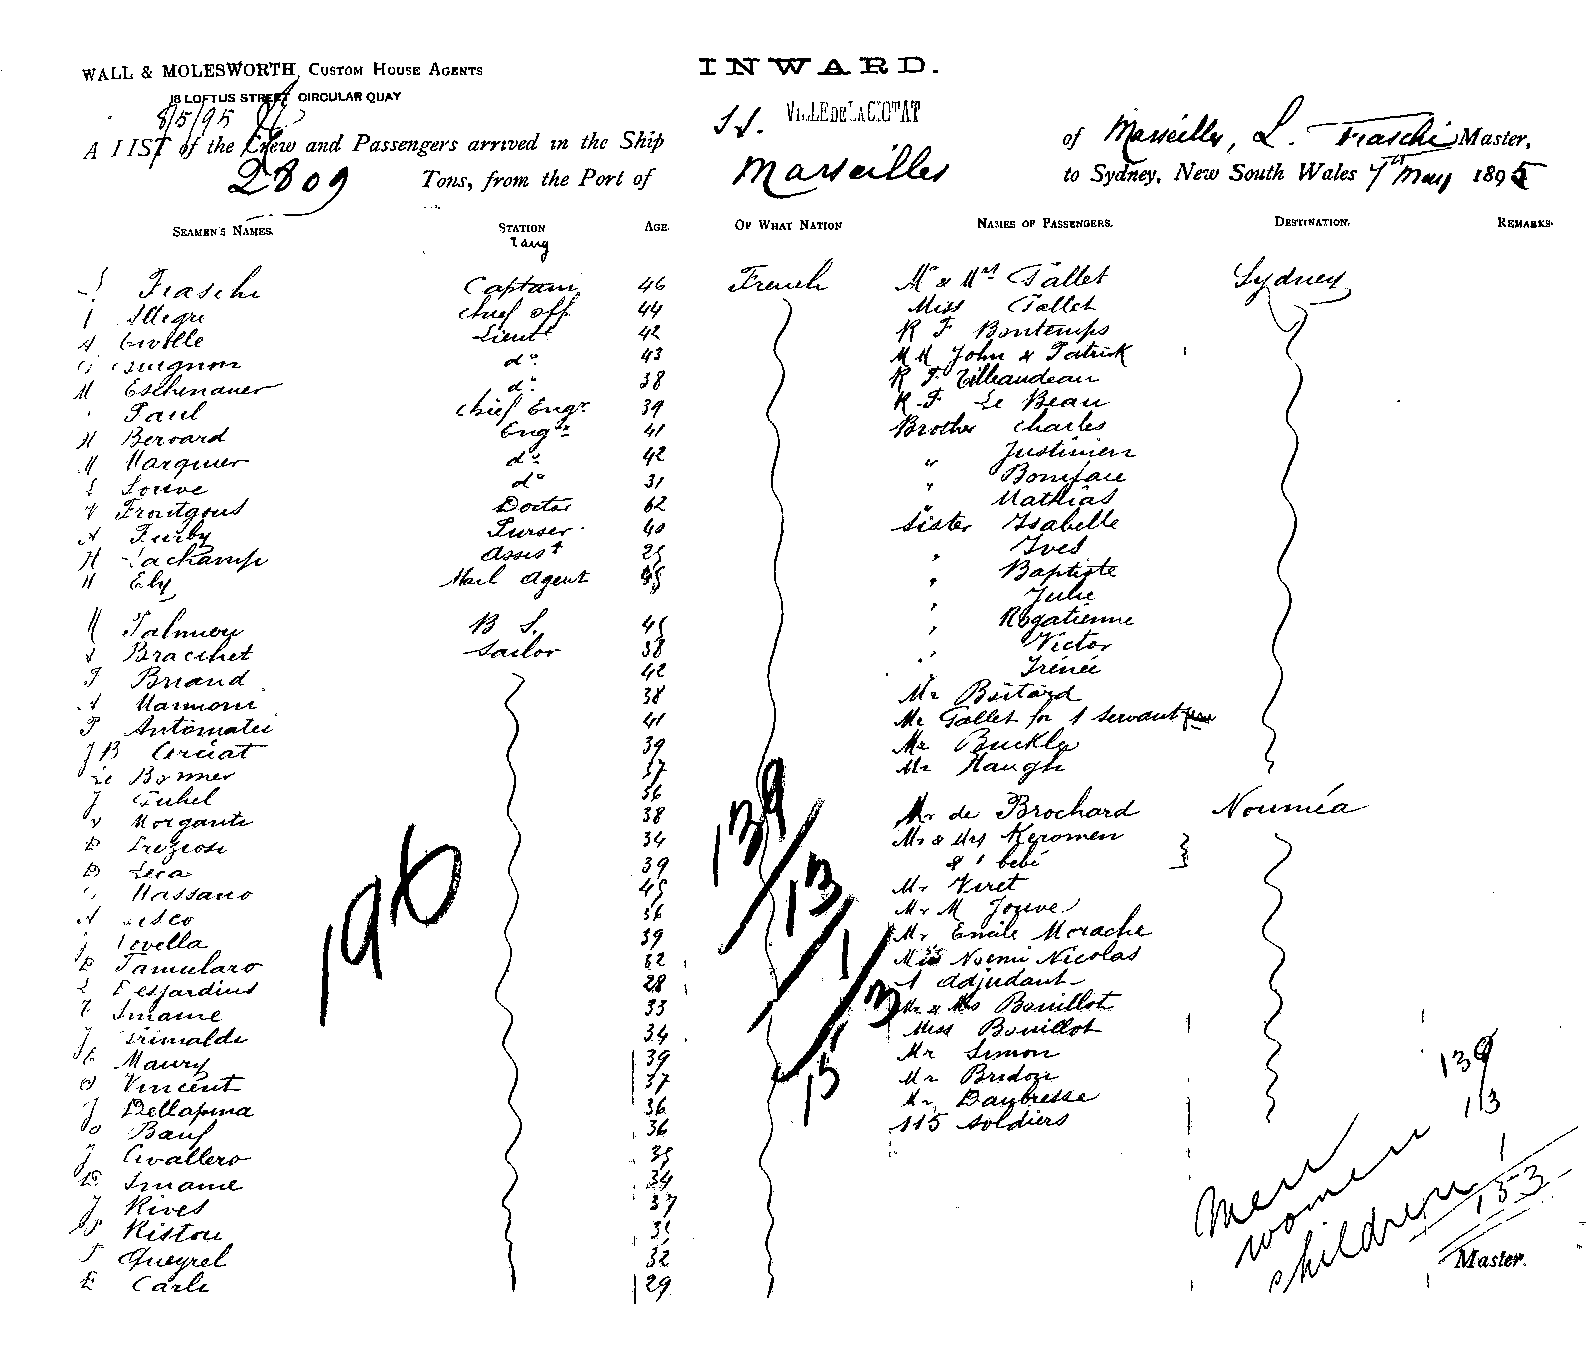 WALL & MOLESWORTH, CUSTOM HOUSE AGENTS
18 LOFTUS STREET CIRCULAR QUAY
INWARD.
8/5/95
A LIST of the Crew and Passengers arrived in the Ship S.S. VILLE DE LA CIOTAT of Marseilles, L. Fraschi Master,
2809 Tons, from the Port of Marseilles to Sydney, New South Wales 7th May 1895
SEAMEN'S NAMES. STATION AGE. OF WHAT NATION NAMES OF PASSENGERS. DESTINATION. REMARKS.
Fraschi Captain 46 French Mr & Mrs Gallet Sydney
Allegri chief off 44 Miss Gallet
Lieut 42 R F Bontemps
Guignon do 43 MM John & Patrick
M Eschenauer do 38 R F Tilleaudeau
Paul chief Engr 39 R F Le Beau
H Berouard Engr 41 Brother Charles
M Marquier do 42 " Justinien
do 31 " Boniface
Frontgous Doctor 62 " Mathias
A Furby Purser 40 Sister Isabelle
H Lachamp Assist 25 " Yves
H Ely Mail Agent 45 " Baptiste
" Julie
Palmieri B S. 45 " Rogatienne
Bracchet Sailor 38 " Victor
Briand 42 " Irénée
A Marmoni 38 Mr Bastard
P Antomatei 41 Mr Gallet for 1 servant
J B Cerciat 39 Mr Buckle
Le Bonner 37 Mr Haugh
J Guhel 36
Morganti 38 Mr de Brochard Nouméa
Preziosi 34 Mr & Mrs Keromen
D Leca 39 & 1 bebé
Massano 45 Mr Viret
A 36 Mr M Jouve
J Novella 39 Mr Emile Morache
Tamularo 32 Miss Noemi Nicolas
Desjardins 28 1 adjudant
Imame 33 Mr & Mrs Bouillot
J Grimaldi 34 Miss Bouillot
Maury 39 Mr Simon
Vincent 37 Mr Bridon
J Dellapina 36 Mr Daubresse
Bauf 36 115 soldiers
J Cavallero 35
Imame 34
J Rives 37
Ristou 35
Queyrel 32
E Carli 29
196
139
13
1
Men 139
women 13
children 1
153
Master.